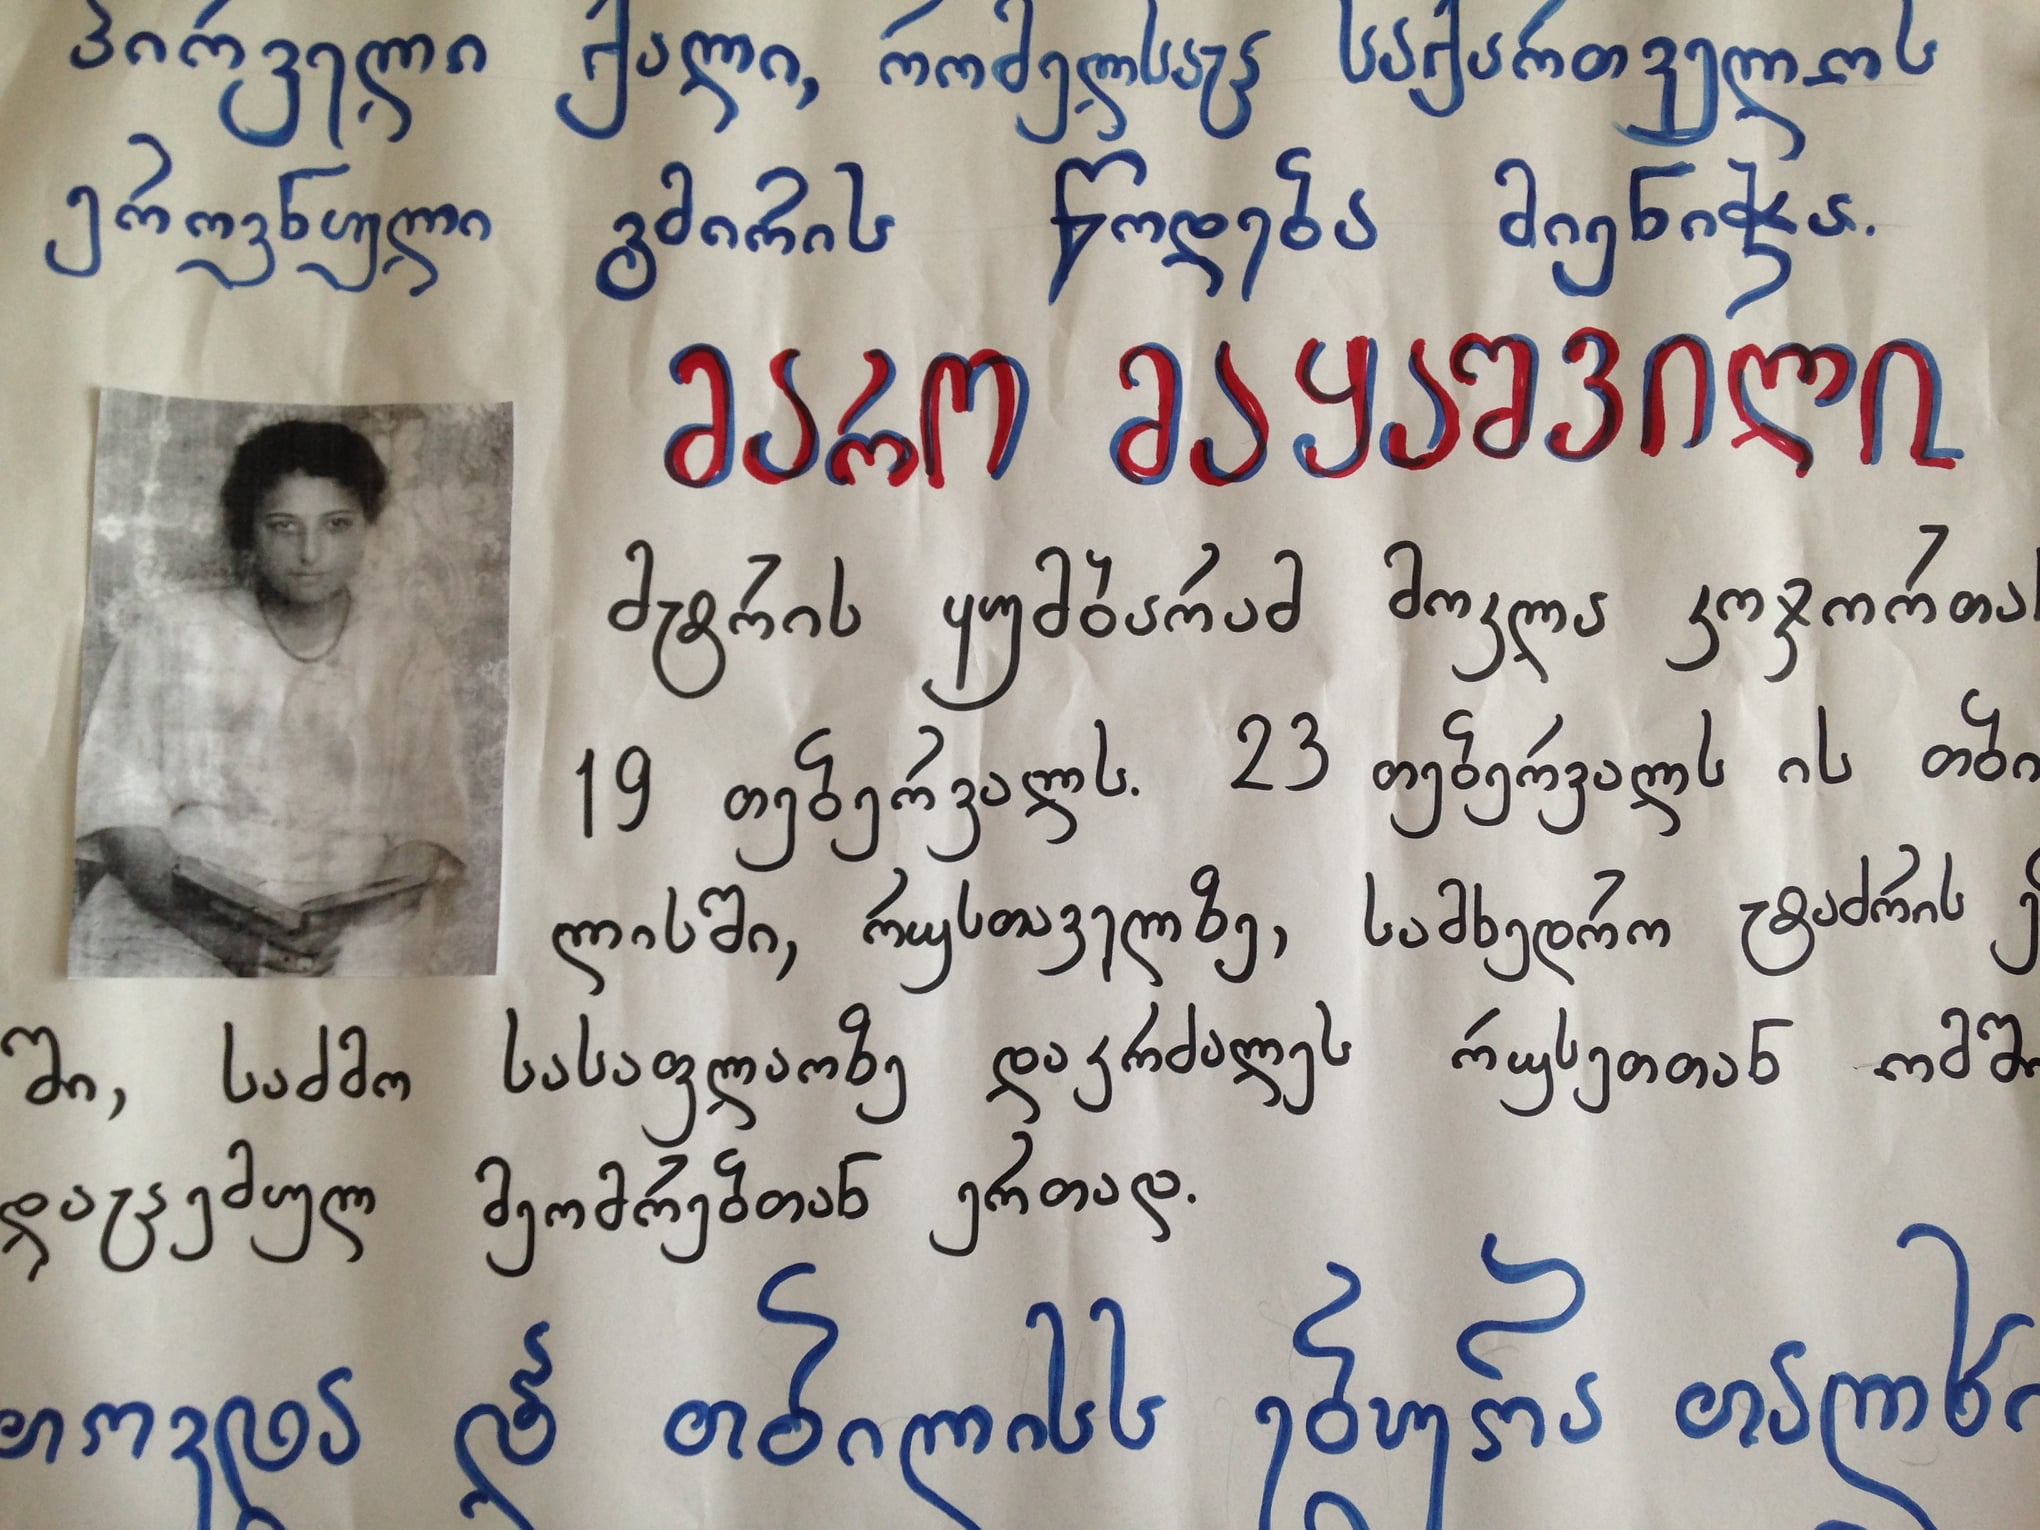 პირველი ქალი, რომელსაც საქართველოს
ეროვნული გმირის წოდება მიენიჭა.
მარო მაყაშვილი
მტრის ყუმბარამ მოკლა კოჯორთან
19 თებერვალს. 23 თებერვალს ის თბი
ლისში, რუსთაველზე, სამხედრო ტაძრის ე
ში, საძმო სასაფლაოზე დაკრძალეს რუსეთთან ომში
დაცემულ მეომრებთან ერთად.
თოვდა და თბილისს ებურა თალხი